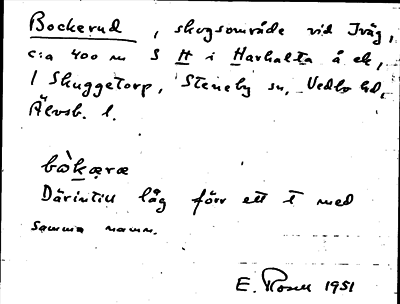 Bockerud, skogsområde vid Iväg,
c:a 400 m S H i Harhalta å ek,
1 Skuggetorp, Steneby sn, Vedbo hd,
Älvsb. l.
bòkæræ
Därintill låg förr ett t med
samma namn.
E. Rosell 1951